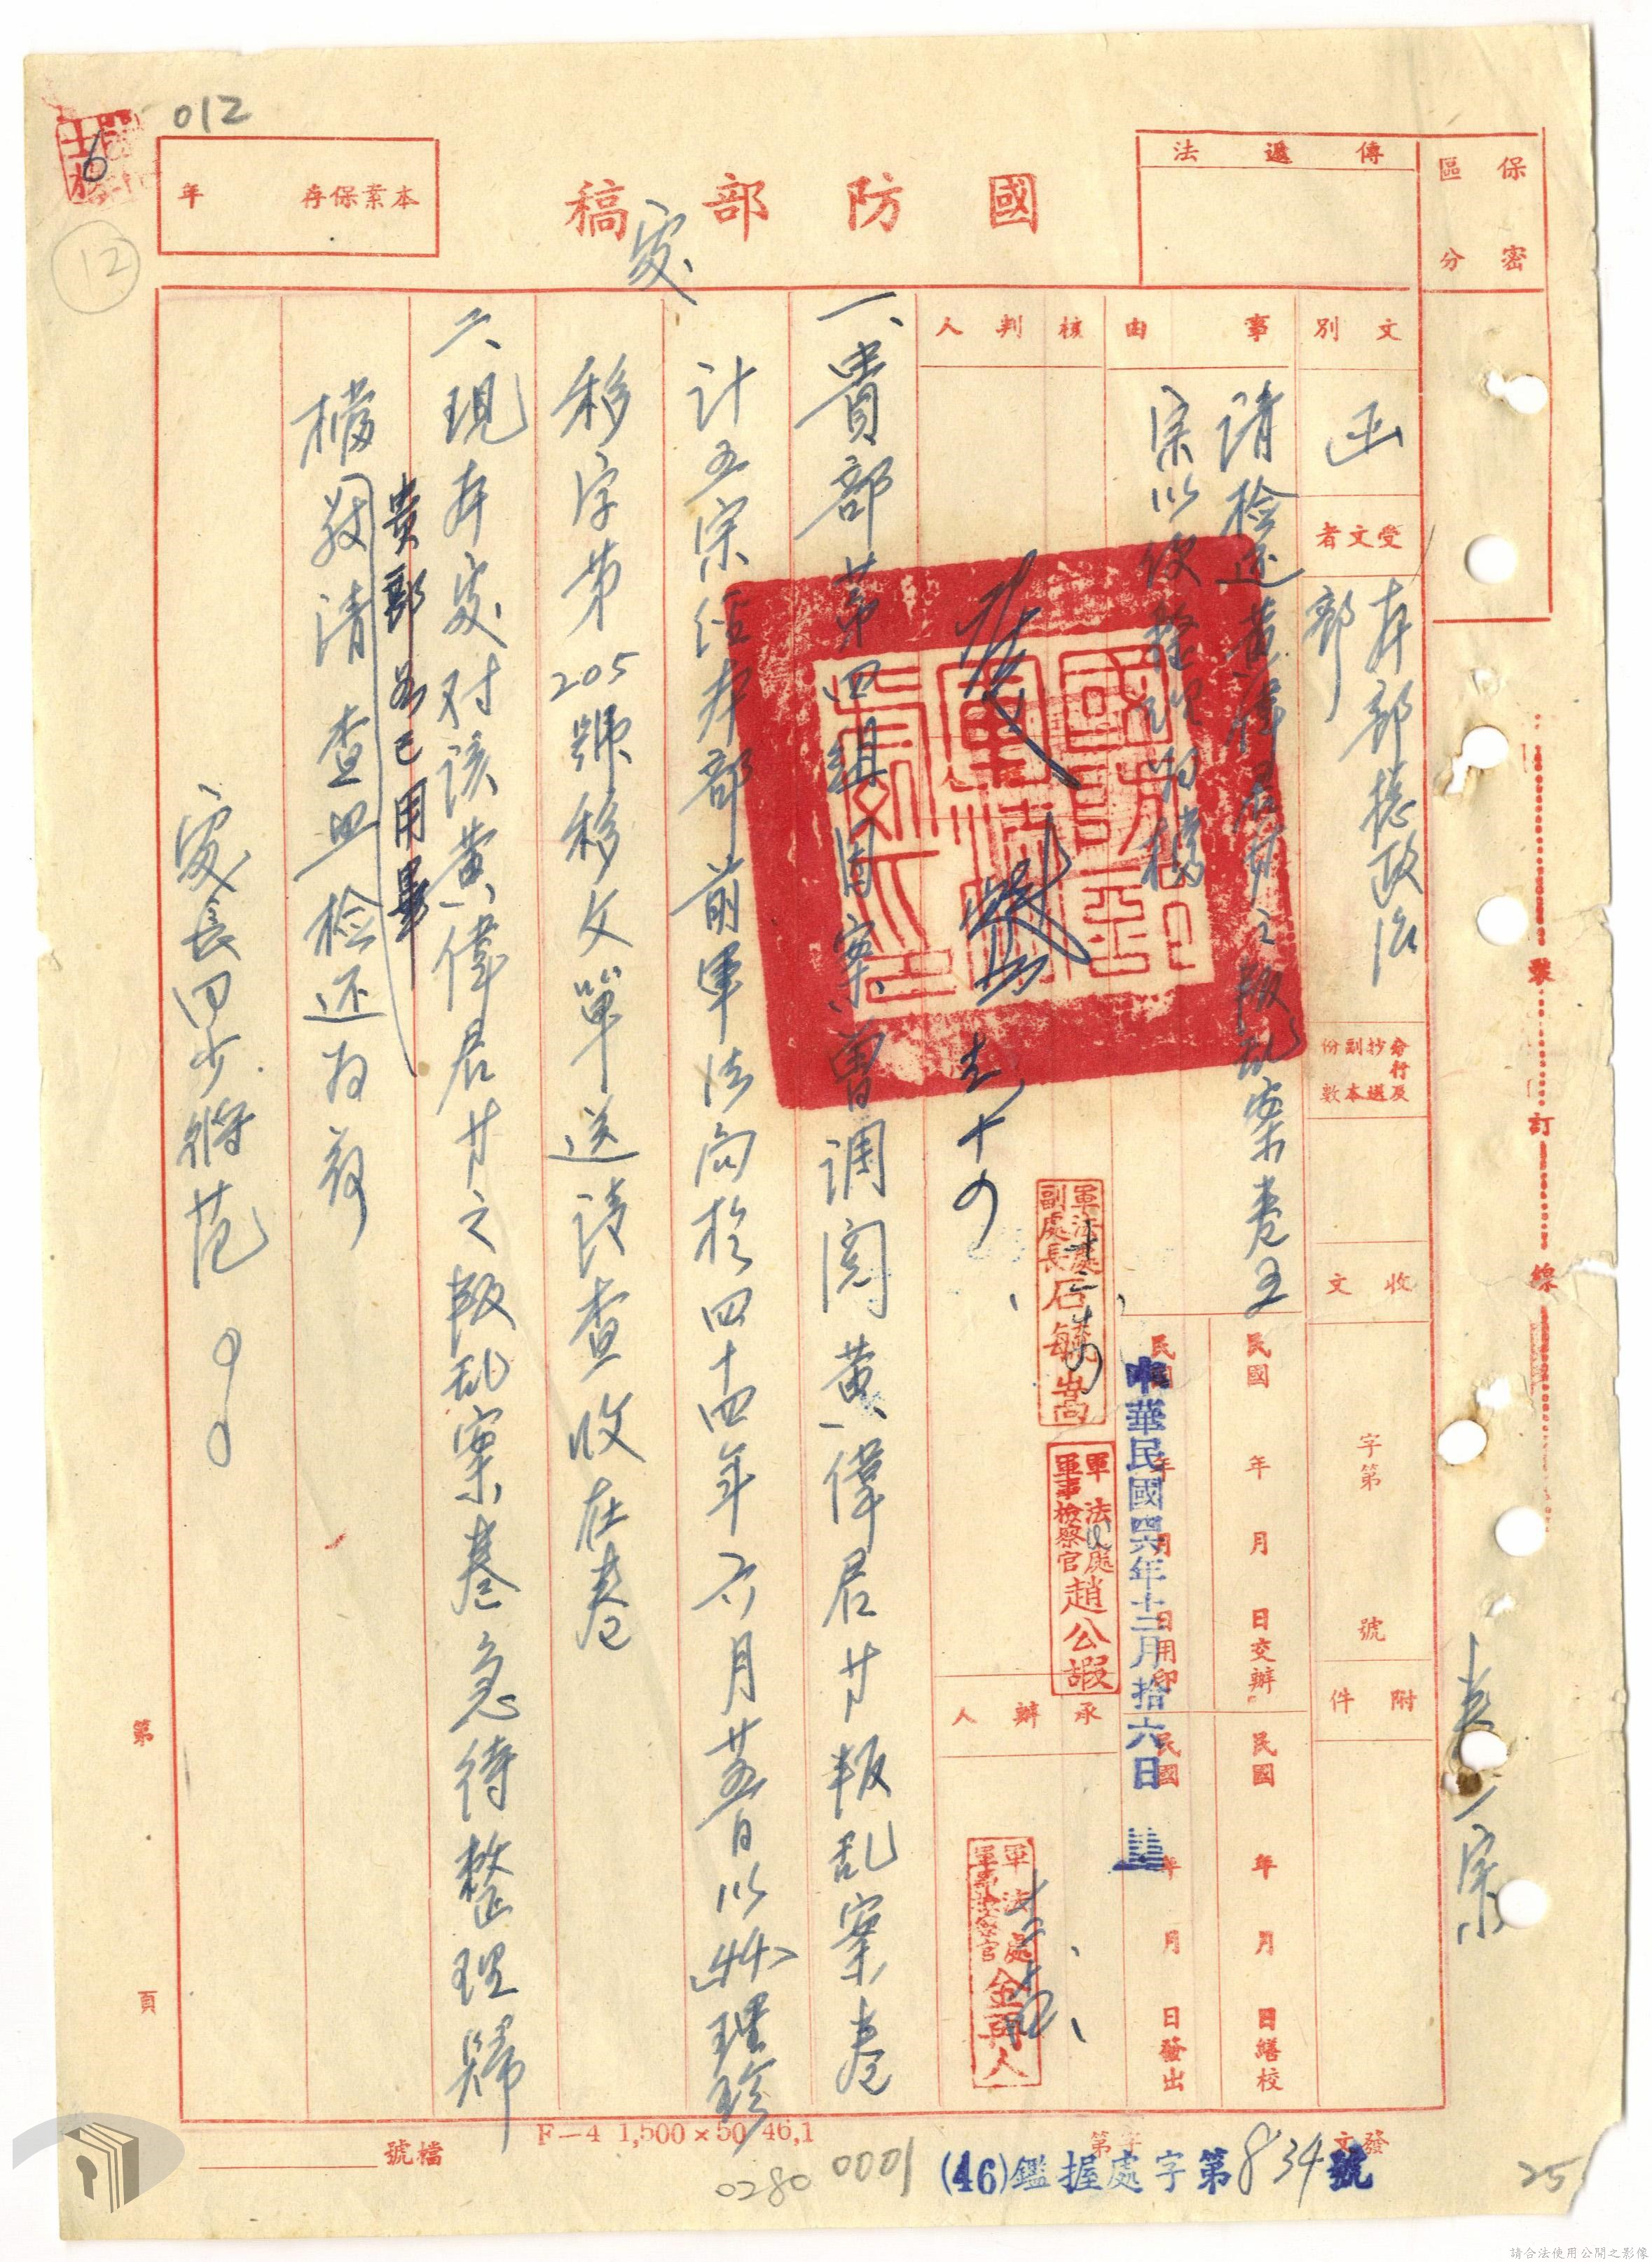 012
6
12
國防部稿
處
本案保存 年
傳遞法
保密
區分
文別
函
受文者
本部總政治
部
分行及抄副
選本份數
收文
字第 號
附件
卷一宗
事由
請檢還黃偉君等之叛亂案卷五
宗以便整理歸檔
核判人
發
十四
軍法處
副處長 石毓嵩
軍法處
軍事檢察官 趙公嘏
承辦人
民國 年 月 日交辦
民國 年 月 日繕校
民國 年 月 日用印
民國 年 月 日發出
中華民國四六年十二月拾六日
一、貴部第四組因案曾調閱黃偉君廿叛乱案卷
計五宗經本部前軍法局於四十四年六月廿五日以
理珍
移字第205號移文單送請查收在卷
二、現本處对該黃偉君廿之叛乱案卷急待整理歸
貴部如已用畢
檔敬請查照檢还為荷
處長周少將范
裝訂線
第 頁
檔號
F—4 1,500×50 46,1
0280
0001
發文 字第
(46)鑑握處字第834號
25
請合法使用公開之影像